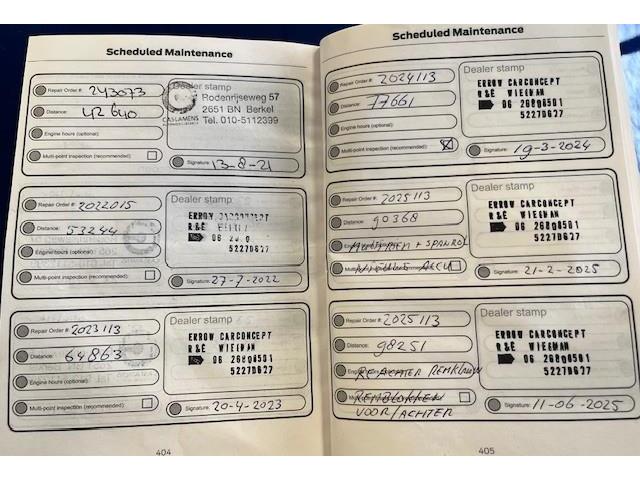 Scheduled Maintenance
Repair Order #: 243073
Distance: 42640
Engine hours (optional):
Multi-point inspection (recommended):
Dealer stamp
Rodenrijseweg 57
2651 BN Berkel
Tel. 010-5112399
CASLAMENS
Signature: 13-8-21
Repair Order #: 2022015
Distance: 53244
Engine hours (optional):
Multi-point inspection (recommended):
Dealer stamp
ERROW CARCONCEPT
R&E
06
52270627
Signature: 27-7-2022
Repair Order #: 2023113
Distance: 64863
Engine hours (optional):
Multi-point inspection (recommended):
Dealer stamp
ERROW CARCONCEPT
R&E WIEEMAN
06 26808501
52270627
Signature: 20-4-2023
404
Scheduled Maintenance
Repair Order #: 2024113
Distance: 77661
Engine hours (optional):
Multi-point inspection (recommended):
Dealer stamp
ERROW CARCONCEPT
R&E WIEEMAN
06 26808501
52270627
Signature: 19-3-2024
Repair Order #: 2025113
Distance: 90368
+ SPANROL
ACCU
Dealer stamp
ERROW CARCONCEPT
R&E WIEEMAN
06 26808501
52270627
Signature: 21-2-2025
Repair Order #: 2025113
Distance: 98251
ACHTER REMKLAUW
REMBLOKKEN
VOOR/ACHTER
Dealer stamp
ERROW CARCONCEPT
R&E WIEEMAN
06 26808501
52270627
Signature: 11-06-2025
405